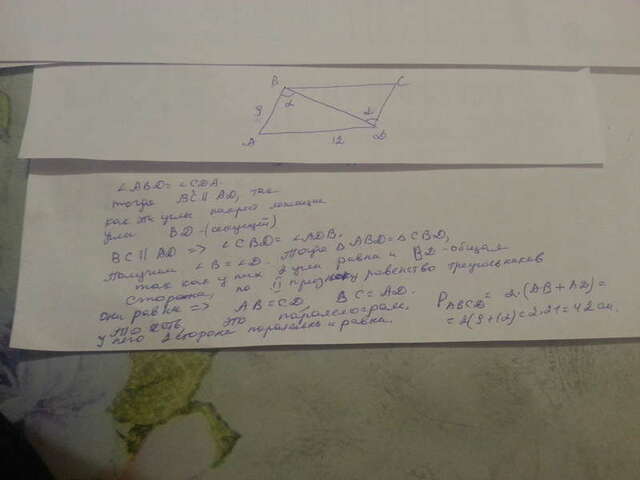 B
C
9
α
α
A
12
D
∠ABD = ∠CDA.
тогда BC ∥ AD, так
как эти углы накрест лежащие
BD - (секущей)
BC ∥ AD => ∠CBD = ∠ADB.
Получим ∠B = ∠D. Тогда △ABD = △CBD,
так как у них 2 угла равна и BD - общая
сторона, по II признаку равенство треугольников
они равна => AB = CD, BC = AD.
То есть, это параллелограм,
у него 2 стороне параллельны и равна.
P ABCD = 2·(AB + AD) =
= 2(9 + 12) = 2·21 = 42 см.